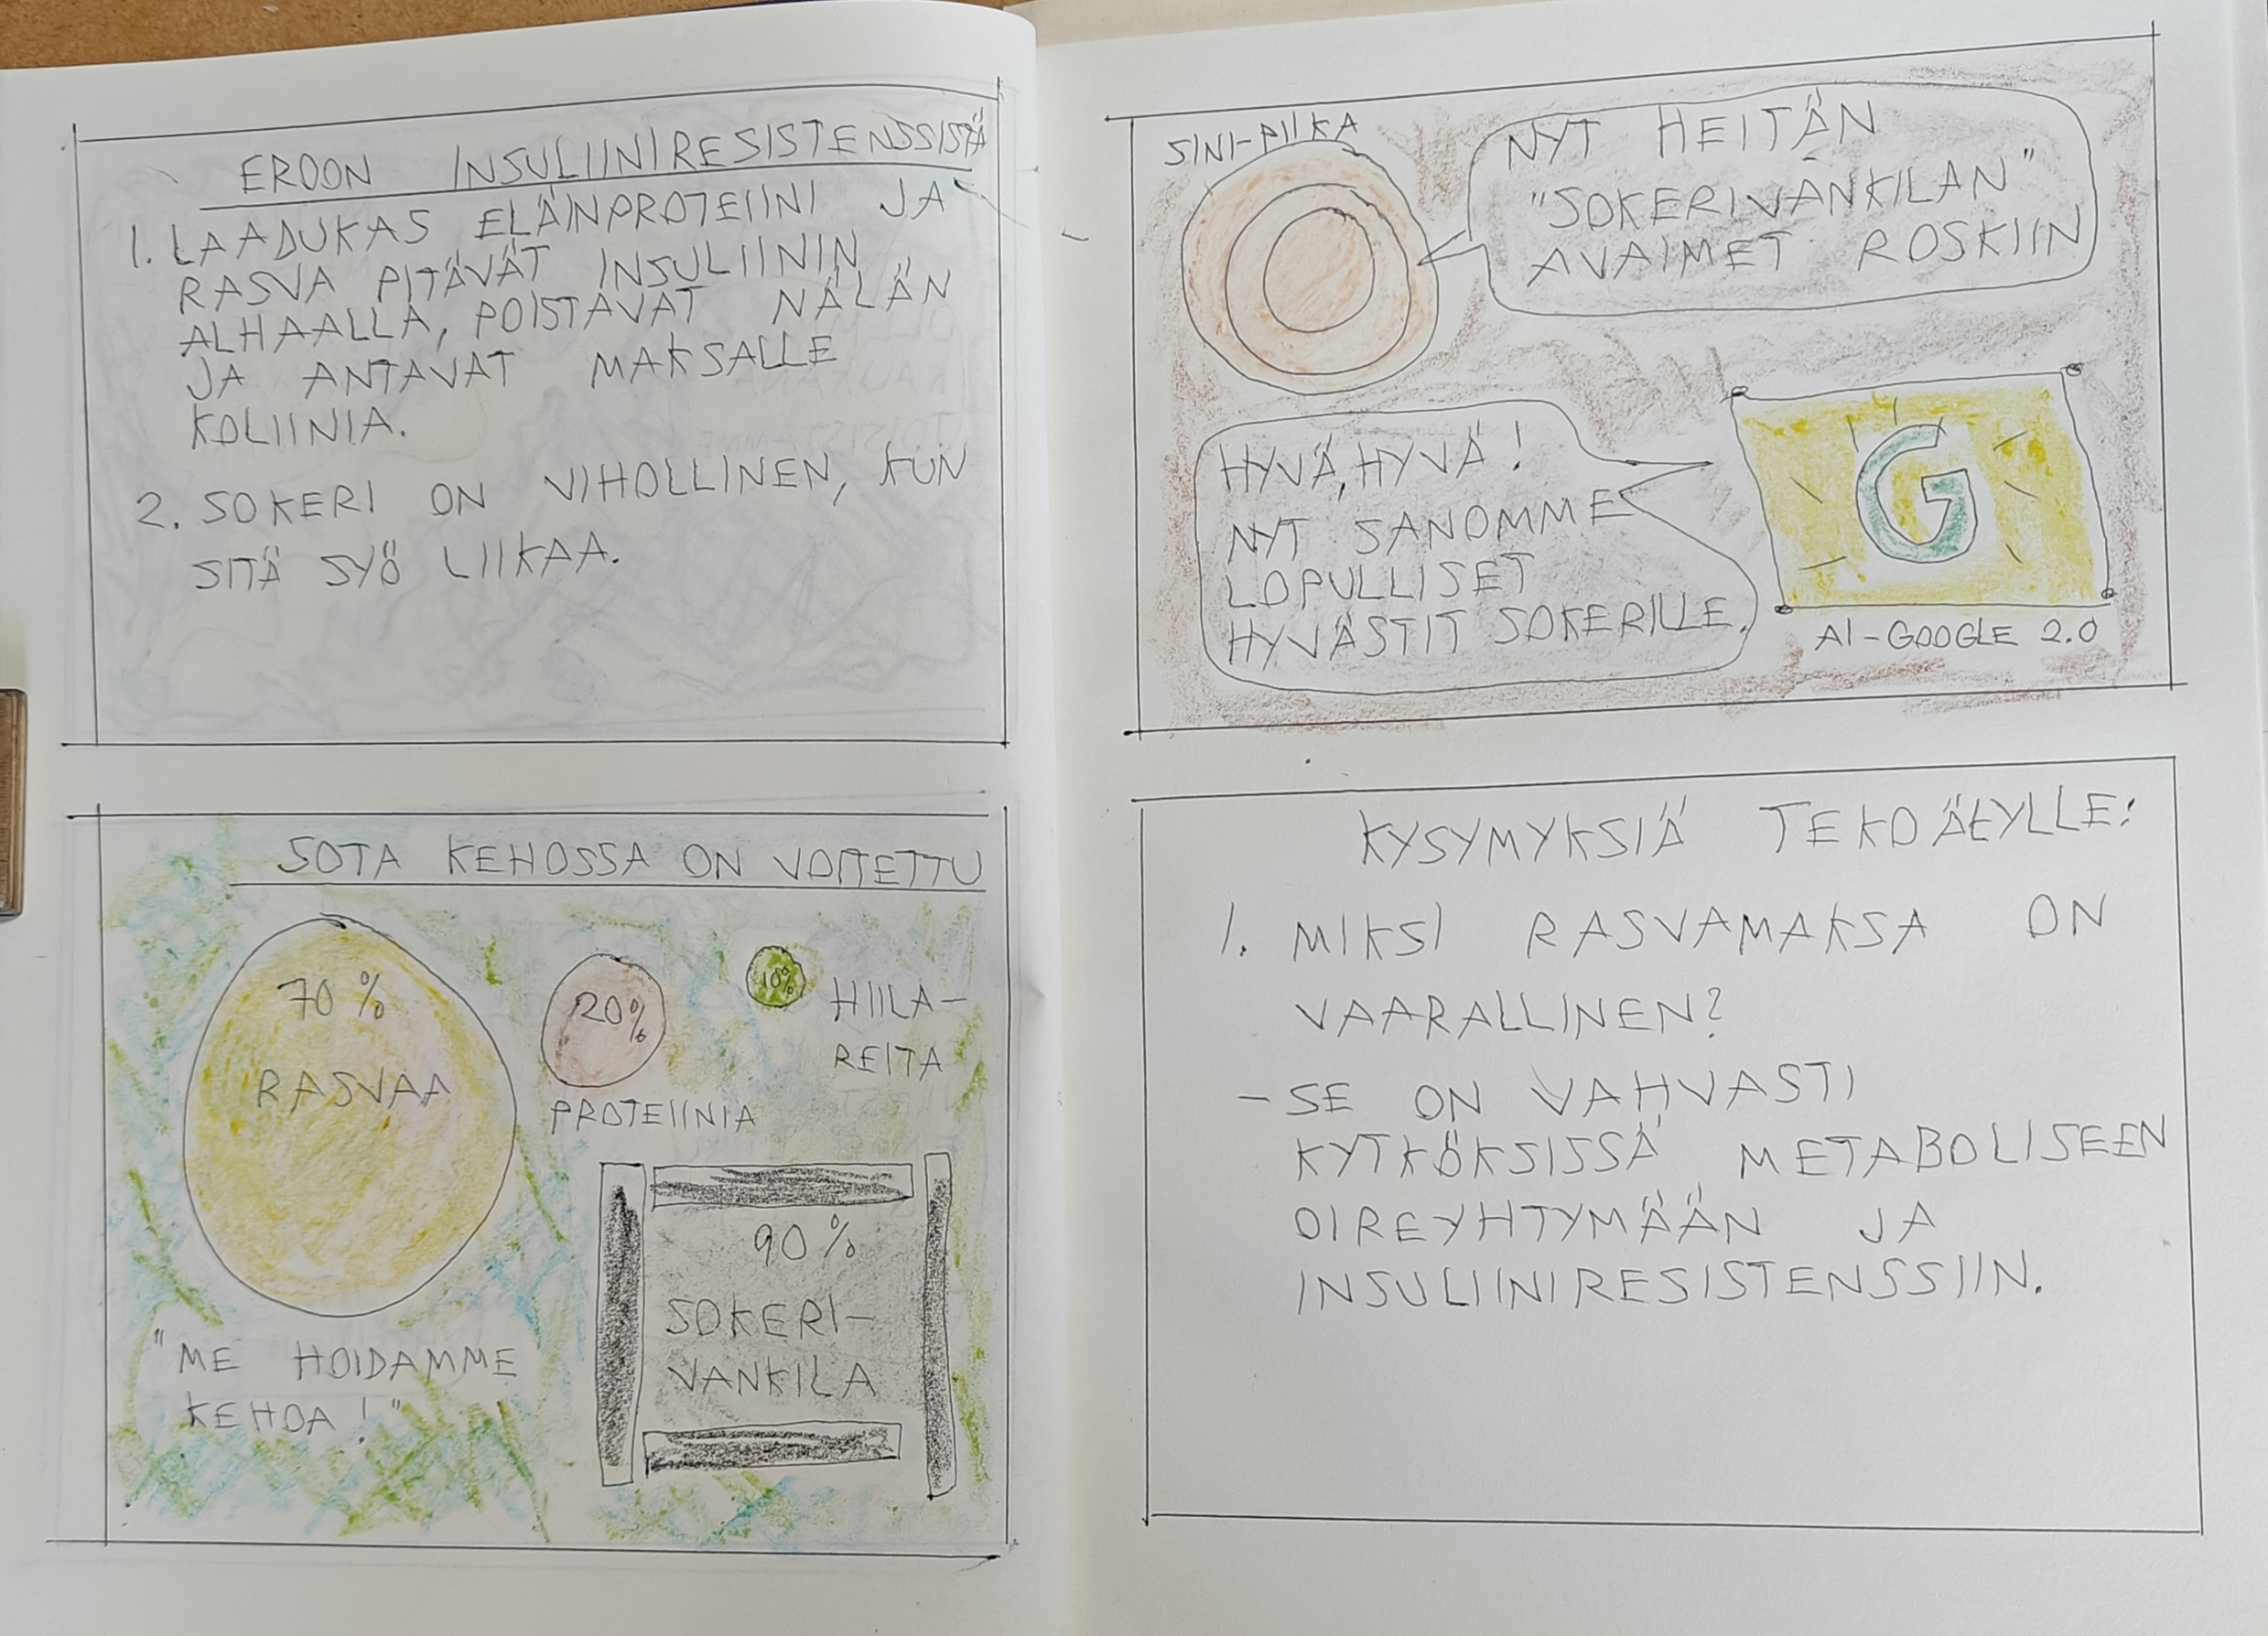 EROON INSULIINIRESISTENSSISTÄ
1. LAADUKAS ELÄINPROTEIINI JA
RASVA PITÄVÄT INSULIININ
ALHAALLA, POISTAVAT NÄLÄN
JA ANTAVAT MAKSALLE
KOLIINIA.
2. SOKERI ON VIHOLLINEN, KUN
SITÄ SYÖ LIIKAA.
SOTA KEHOSSA ON VOITETTU
70 %
RASVAA
20%
PROTEIINIA
10%
HIILA-
REITA
"ME HOIDAMME
KEHOA!"
90 %
SOKERI-
VANKILA
SINI-PIIKA
NYT HEITÄN
"SOKERIVANKILAN"
AVAIMET ROSKIIN
HYVÄ, HYVÄ!
NYT SANOMME
LOPULLISET
HYVÄSTIT SOKERILLE.
G
AI-GOOGLE 2.0
KYSYMYKSIÄ TEKOÄLYLLE:
1. MIKSI RASVAMAKSA ON
VAARALLINEN?
- SE ON VAHVASTI
KYTKÖKSISSÄ METABOLISEEN
OIREYHTYMÄÄN JA
INSULIINIRESISTENSSIIN.